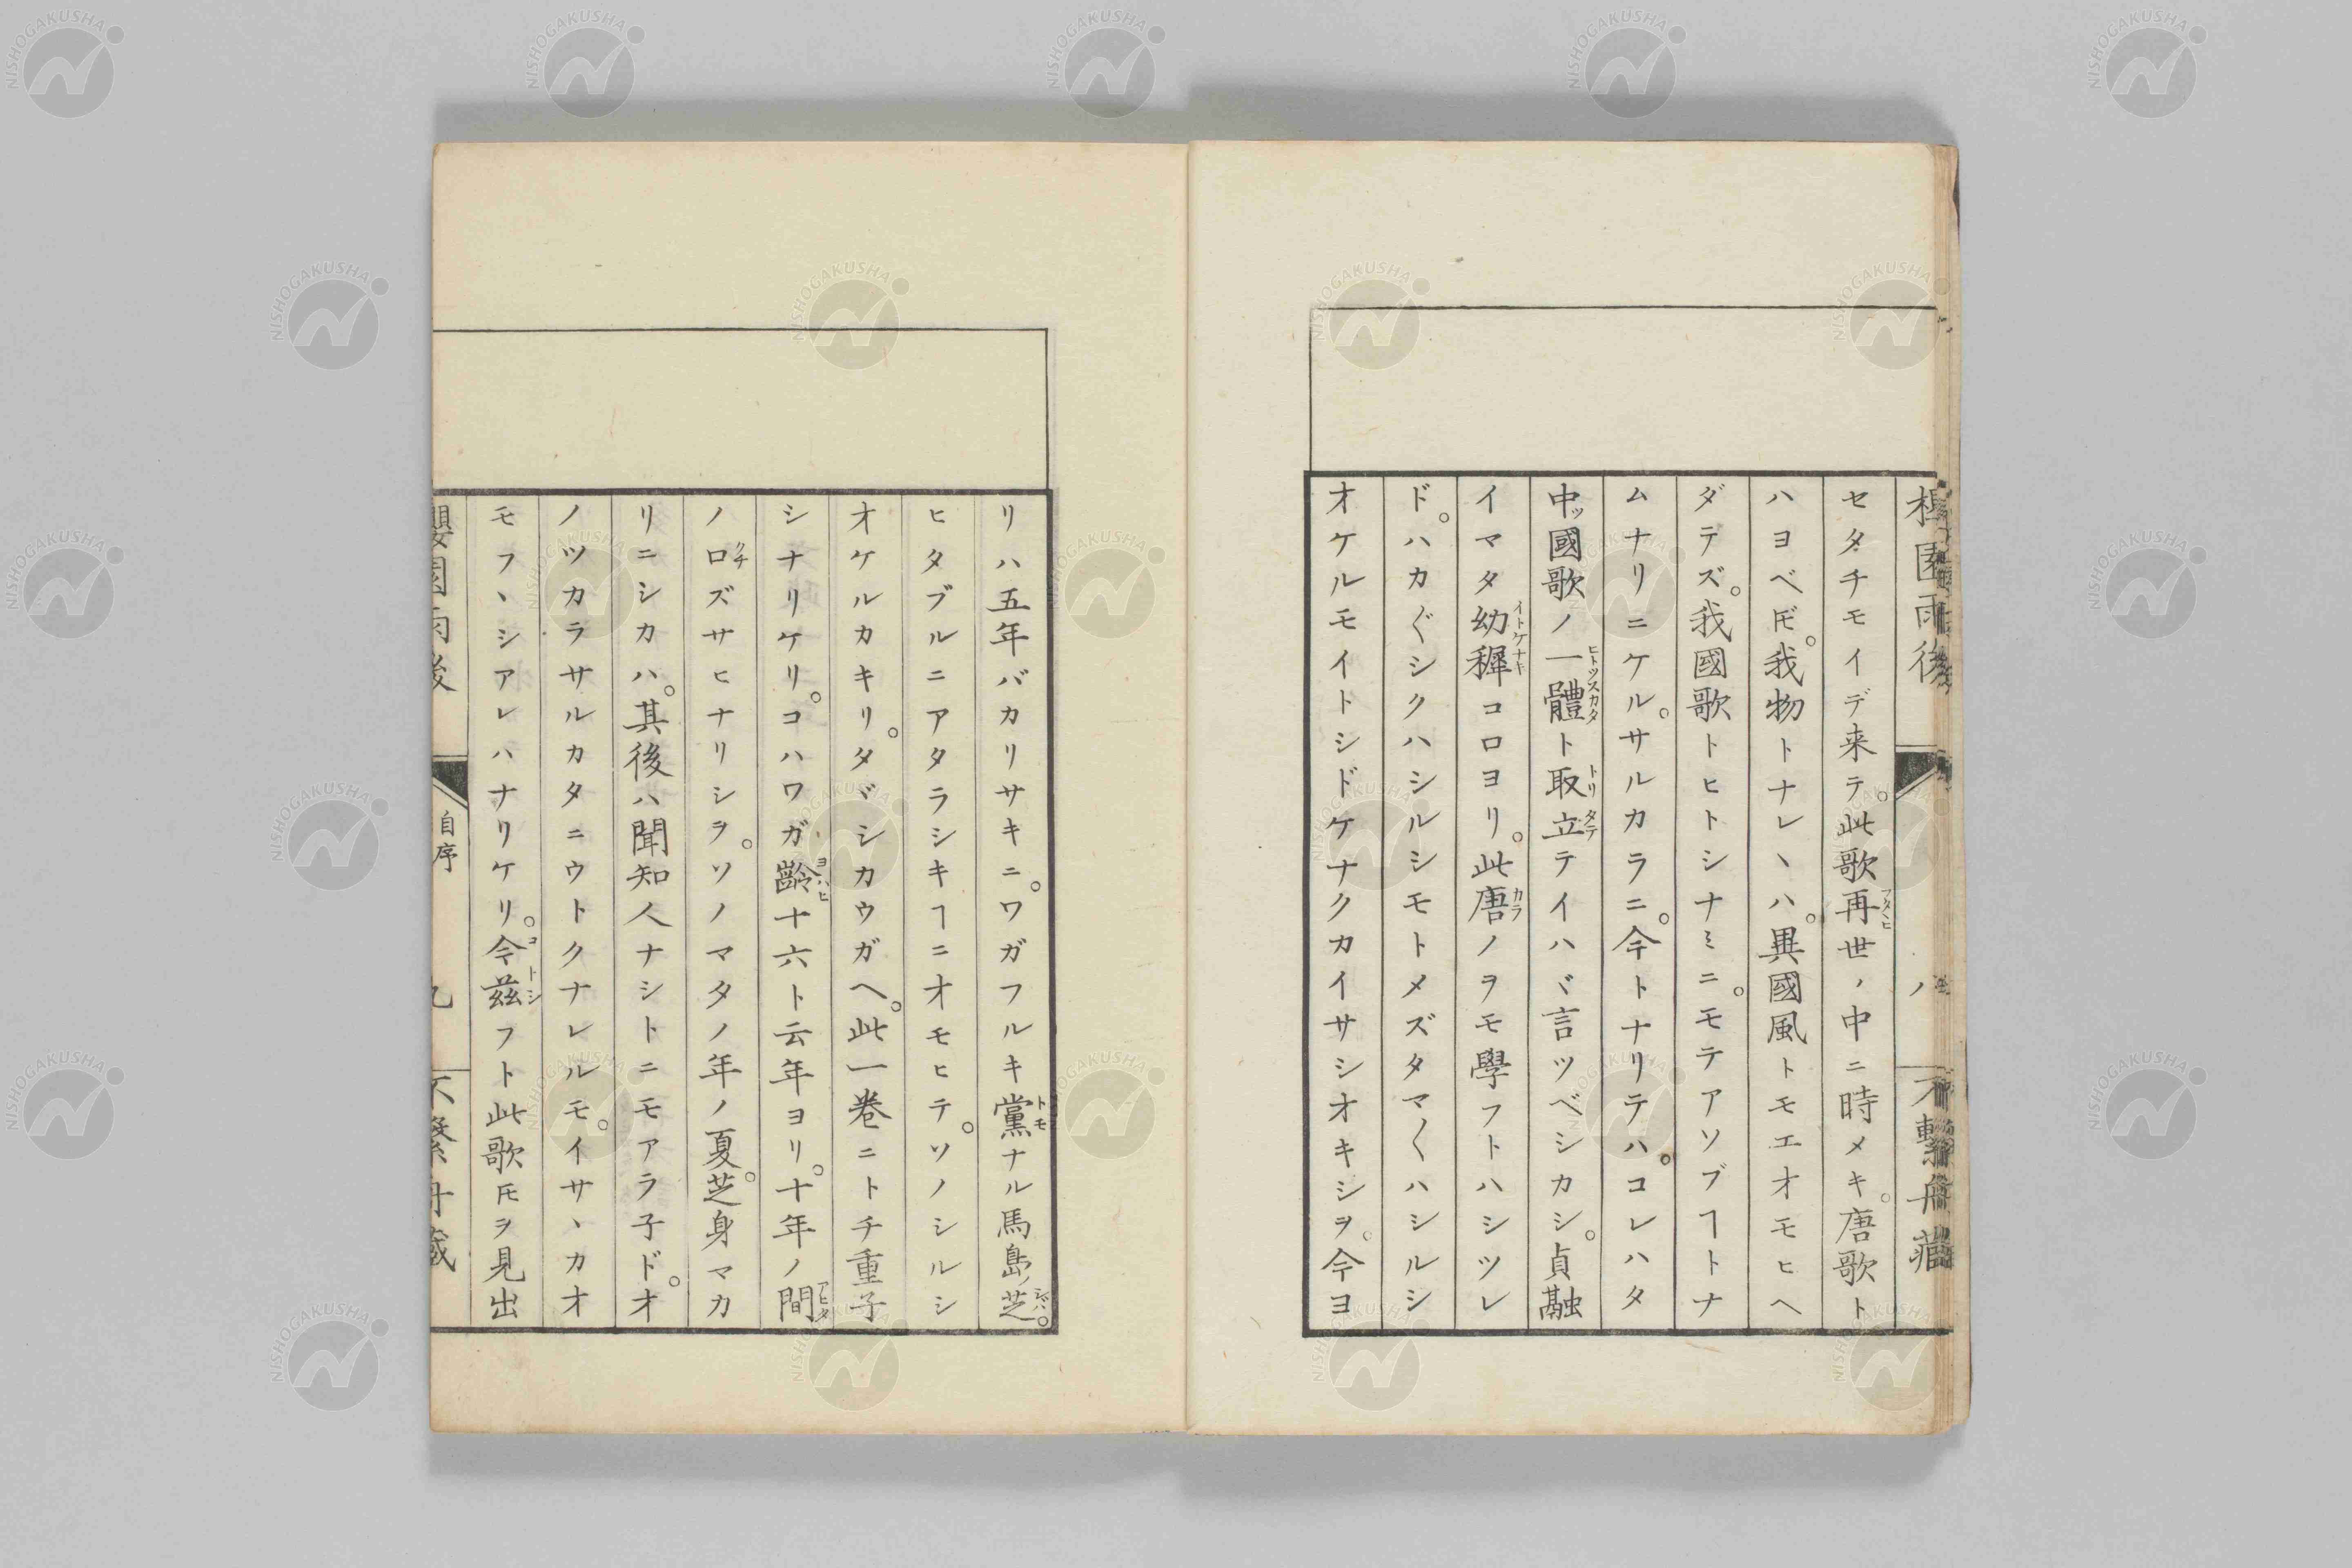 櫻園雨後 八 不繫舟藏
セタチモイデ来テ。此歌再世ノ中ニ時メキ。唐歌ト
フタヽヒ
ハヨベ𪜈。我物トナレヽハ。異國風トモエオモヒヘ
ダテズ。我國歌トヒトシナミニ。モテアソブヿトナ
ムナリニケル。サルカラニ。今トナリテハ。コレハタ
中ツ國歌ノ一體ト取立テイハヾ言ツベシカシ。貞融
ヒトツスカタ トリ タテ
イマタ幼穉コロヨリ。此唐ノヲモ學フトハシツレ
イトケナキ カラ
ド。ハカ〲シクハシルシモトメズタマ〱ハシルシ
オケルモイトシドケナクカイサシオキシヲ。今ヨ
リハ五年バカリサキニ。ワガフルキ黨ナル馬島ノ芝。
トモ シバ
ヒタブルニアタラシキヿニオモヒテ。ソノシルシ
オケルカキリ。タヾシカウガヘ。此一卷ニトチ重子
シナリケリ。コハワガ齡十六ト云年ヨリ。十年ノ間
ヨハヒ アヒタ
ノ口ズサヒナリシヲ。ソノマタノ年ノ夏。芝身マカ
クチ
リニシカハ。其後ハ聞知人ナシトニモアラ子ド。オ
ノツカラサルカタニウトクナレルモ。イサヽカオ
モフヽシアレハナリケリ。今茲フト此歌𪜈ヲ見出
コトシ
櫻園雨後 自序 九 不繫舟藏